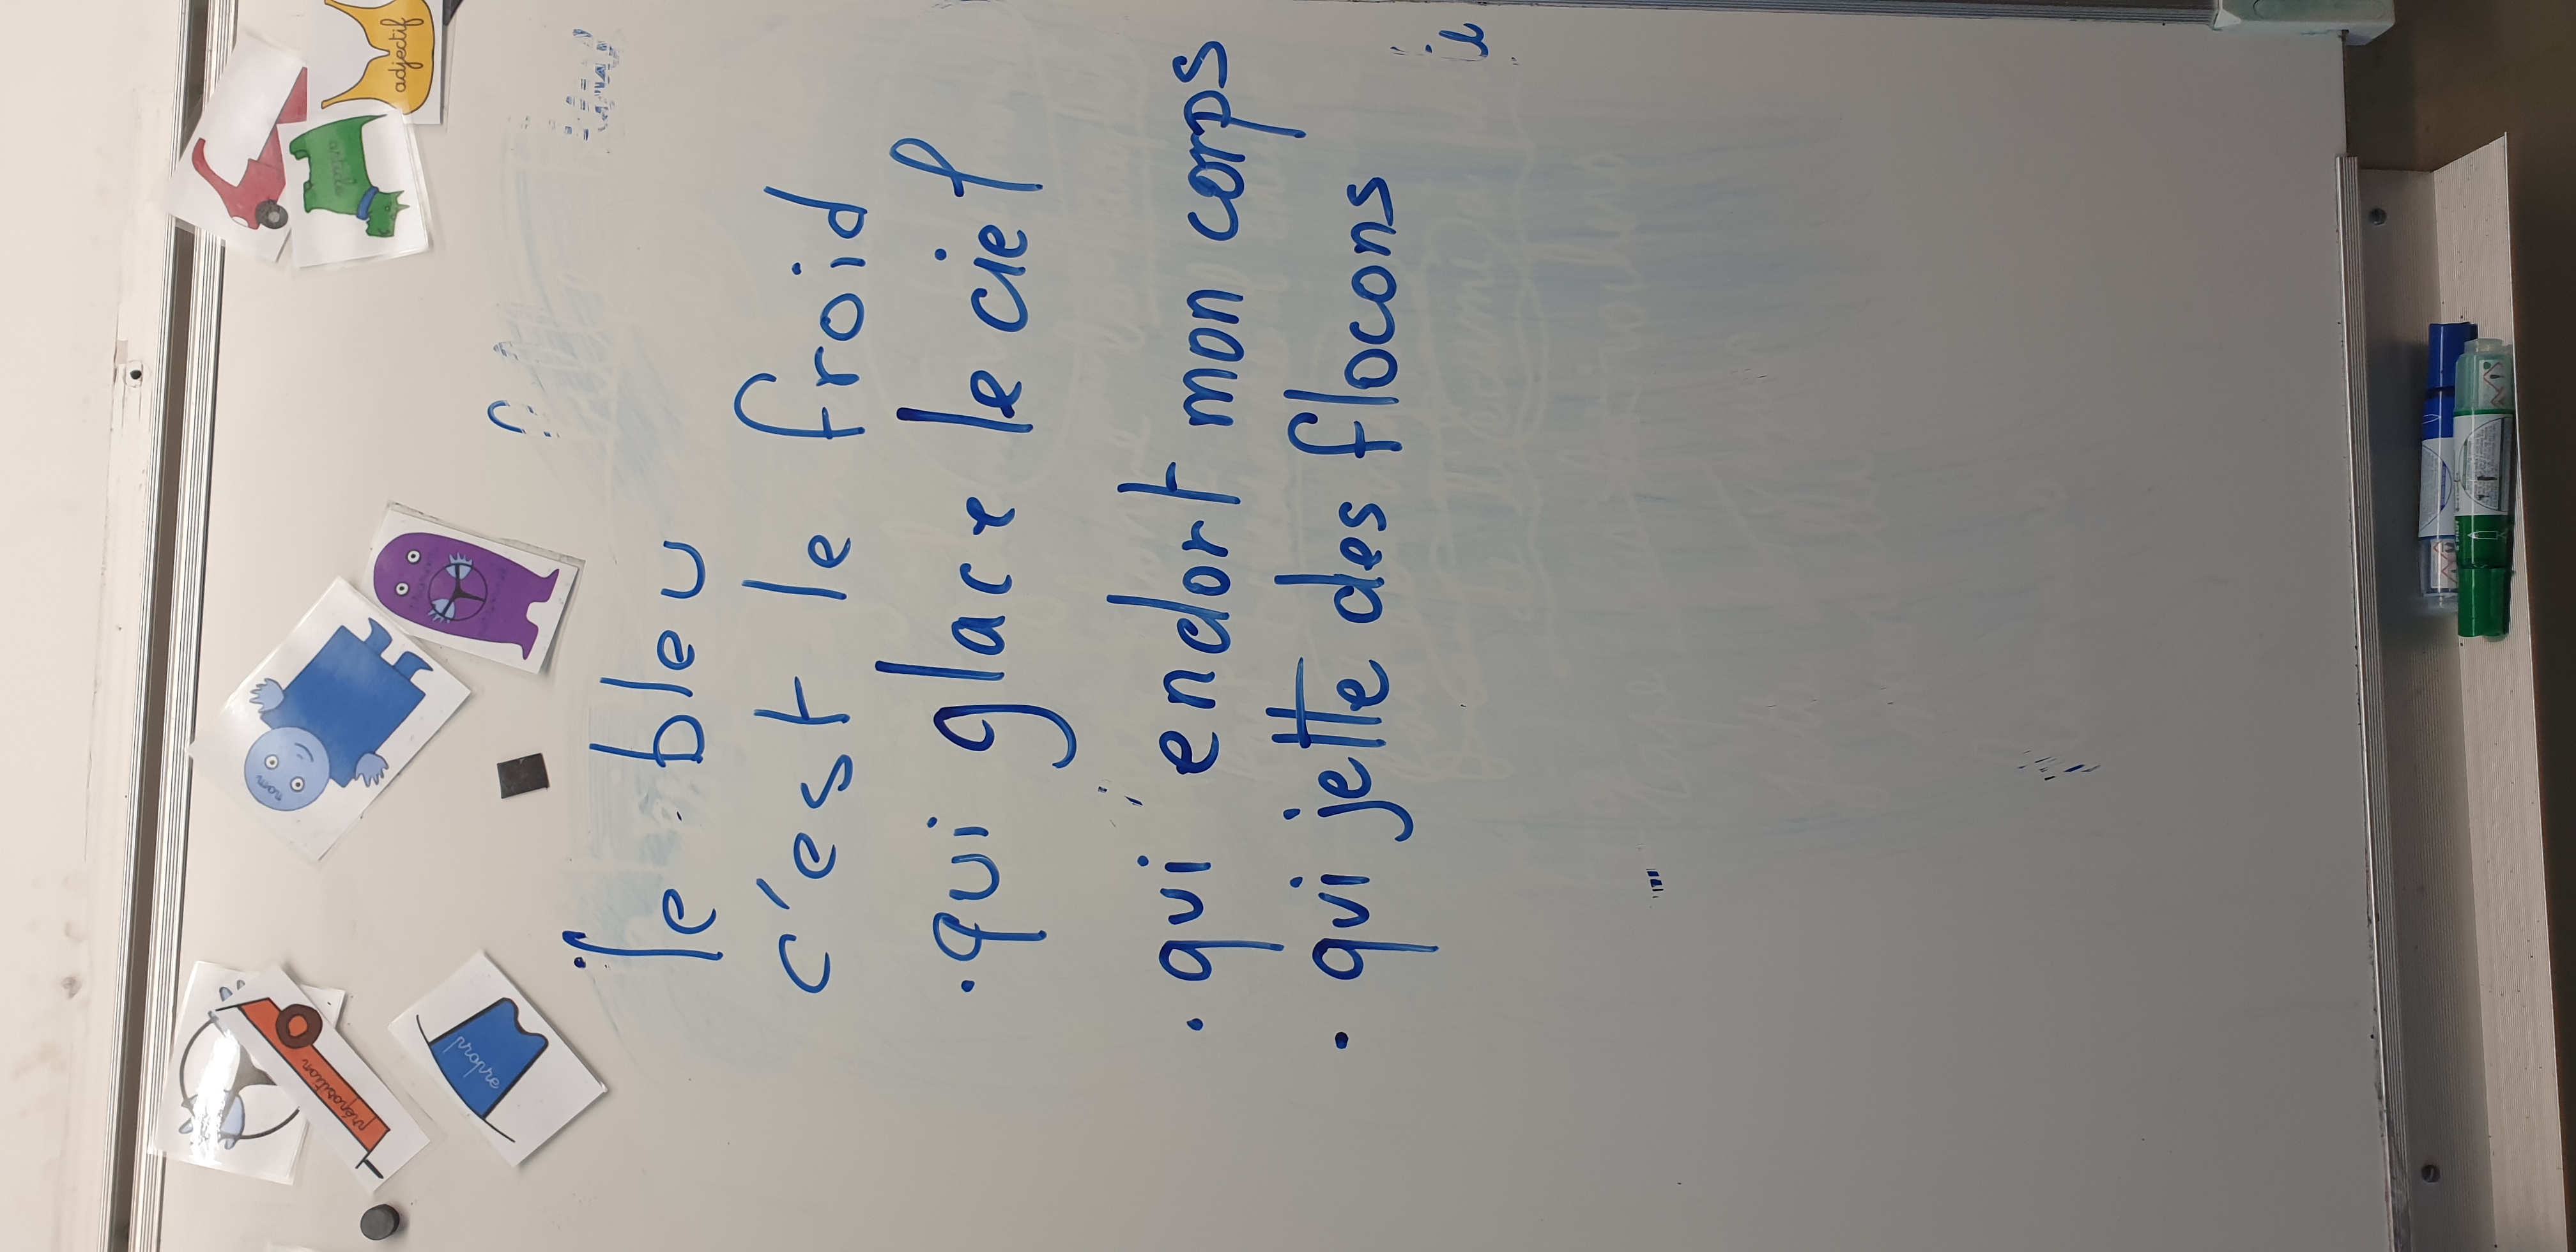 adjectif
article
nom
préposition
propre
le bleu
c'est le froid
.qui glace le ciel
. qui endort mon corps
. qui jette des flocons